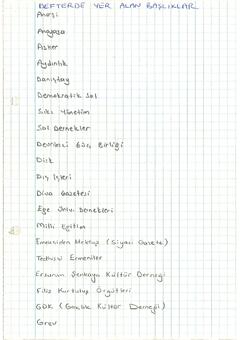 DEFTERDE YER ALAN BAŞLIKLAR
Anarşi
Anayasa
Asker
Aydınlık
Danıştay
Demokratik Sol
Sıkı Yönetim
Sol Dernekler
Devrimci Güç Birliği
Disk
Dış İşleri
Diva Gazetesi
Ege Üniv. Dernekleri
Milli Eğitim
Emekliden Mektup (Siyasi Gazete)
Erzurum Şenkaya Kültür Derneği
Filis Kurtuluş Örgütleri
GDK (Gençlik Kültür Derneği)
Grev